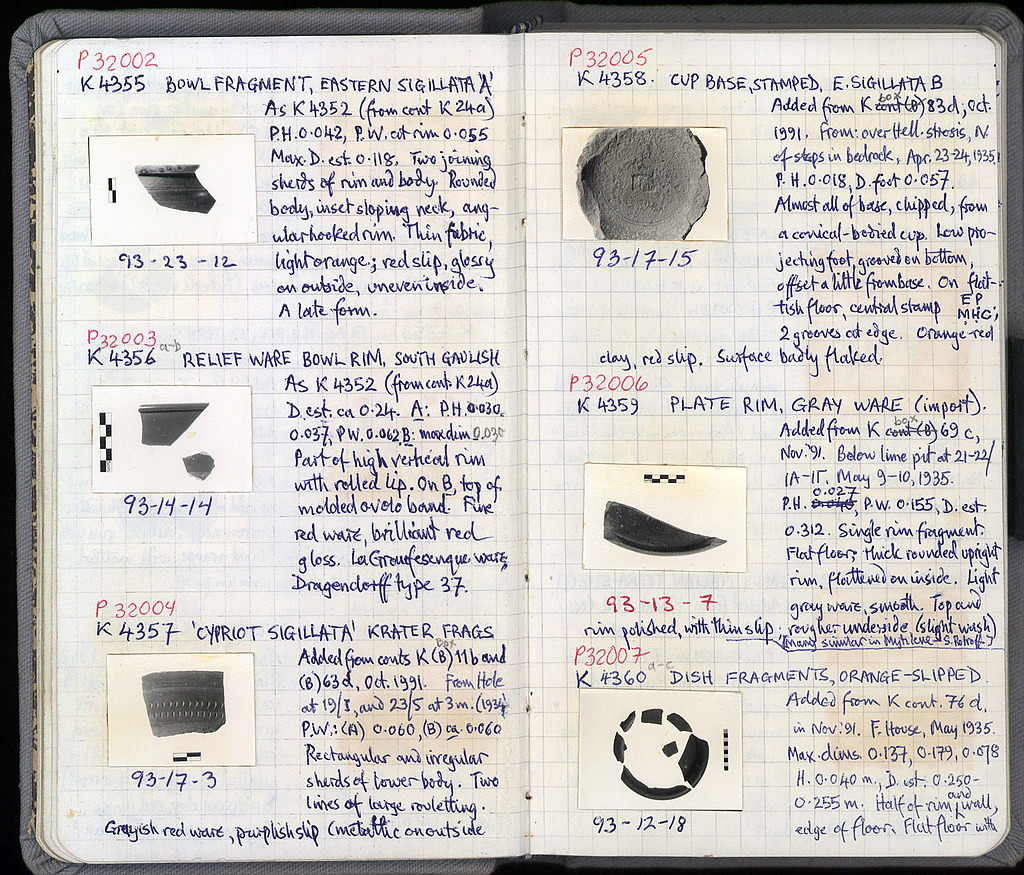 P32002
K 4355 BOWL FRAGMENT, EASTERN SIGILLATA 'A'
As K 4352 (from cont K 24a)
P.H. 0.042, P.W. at rim 0.055
Max. D. est. 0.118. Two joining
sherds of rim and body. Rounded
body, inset sloping neck, ang-
ular hooked rim. Thin fabric,
light orange; red slip, glossy
on outside, uneven inside.
A late form.
93-23-12
P32003
K 4356 a-b RELIEF WARE BOWL RIM, SOUTH GAULISH
As K 4352 (from cont. K 24a)
D. est. ca 0.24. A: P.H. 0.030.
0.037, P.W. 0.062, B: max dim 0.030
Part of high vertical rim
with rolled lip. On B, top of
molded ovolo band. Fine
red ware, brilliant red
gloss. La Graufesenque ware,
Dragendorff type 37.
93-14-14
P 32004
K 4357 'CYPRIOT SIGILLATA' KRATER FRAGS
Added from conts K (B) box 11b and
(B) 63d, Oct. 1991. From Hole
at 19/I, and 23/5 at 3m. (1934)
P.W.: (A) 0.060, (B) ca. 0.060
Rectangular and irregular
sherds of lower body. Two
lines of large rouletting.
Grayish red ware, purplish slip (metallic on outside
93-17-3
P32005
K 4358. CUP BASE, STAMPED, E. SIGILLATA B
Added from K cont (B) box 83d, Oct.
1991. From: over Hell. strosis, N.
of steps in bedrock, Apr. 23-24, 1935.
P.H. 0.018, D. foot 0.057.
Almost all of base, chipped, from
a conical-bodied cup. Low pro-
jecting foot, grooved on bottom,
offset a little from base. On flat-
tish floor, central stamp ΕΡ
ΜΗC;
2 grooves at edge. Orange-red
clay, red slip. Surface badly flaked.
93-17-15
P32006
K 4359 PLATE RIM, GRAY WARE (import).
Added from K cont (B) box 69c,
Nov. '91. Below lime pit at 21-22/
ΙΑ-ΙΓ, May 9-10, 1935.
P.H. 0.027, P.W. 0.155, D. est.
0.312. Single rim fragment.
Flat floor; thick rounded upright
rim, flattened on inside. Light
gray ware, smooth. Top and
rim polished, with thin slip; rougher underside (slight wash)
(Many similar in Mytilene - S. Rotroff)
93-13-7
P32007
K 4360 a-c DISH FRAGMENTS, ORANGE-SLIPPED.
Added from K cont. 76d,
in Nov. '91. F. House, May 1935.
Max. dims. 0.137, 0.179, 0.078
H. 0.040 m., D. est. 0.250-
0.255 m. Half of rim, and wall,
edge of floor. Flat floor with
93-12-18